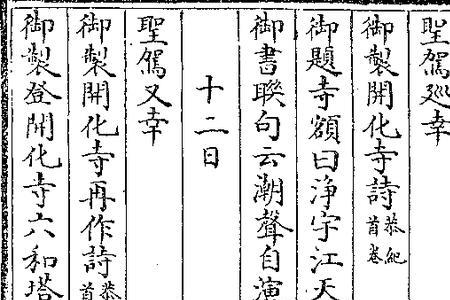 聖駕廵幸
御製開化寺詩恭紀首卷
御題寺額曰淨宇江天
御書聯句云潮聲自演
十二日
聖駕又幸
御製開化寺再作詩恭首
御製登開化寺六和塔